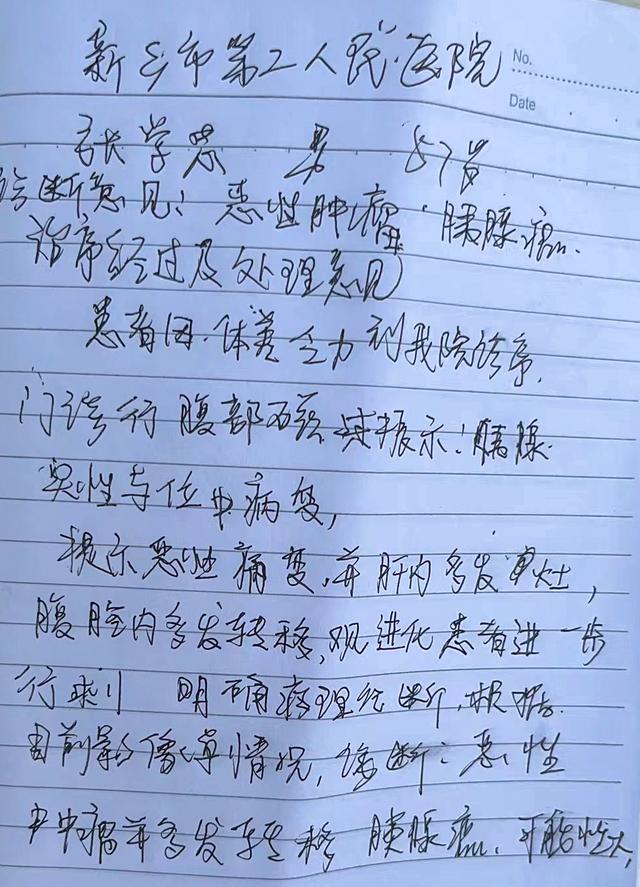 新乡市第二人民医院
No.
Date
张学总 男 57岁
诊断意见：恶性肿瘤 胰腺癌.
治疗经过及处理意见
患者因.体荑乏力到我院诊疗.
门诊行腹部 提示：胰腺
实性占位中病变，
提示恶性病变,并肝内多发 灶，
腹腔内多发转移,观进化患者进一步
行 明确病理诊断,根据.
目前影像 情况，诊断：恶性
中肿瘤并多发转移 胰腺癌.可能性大,